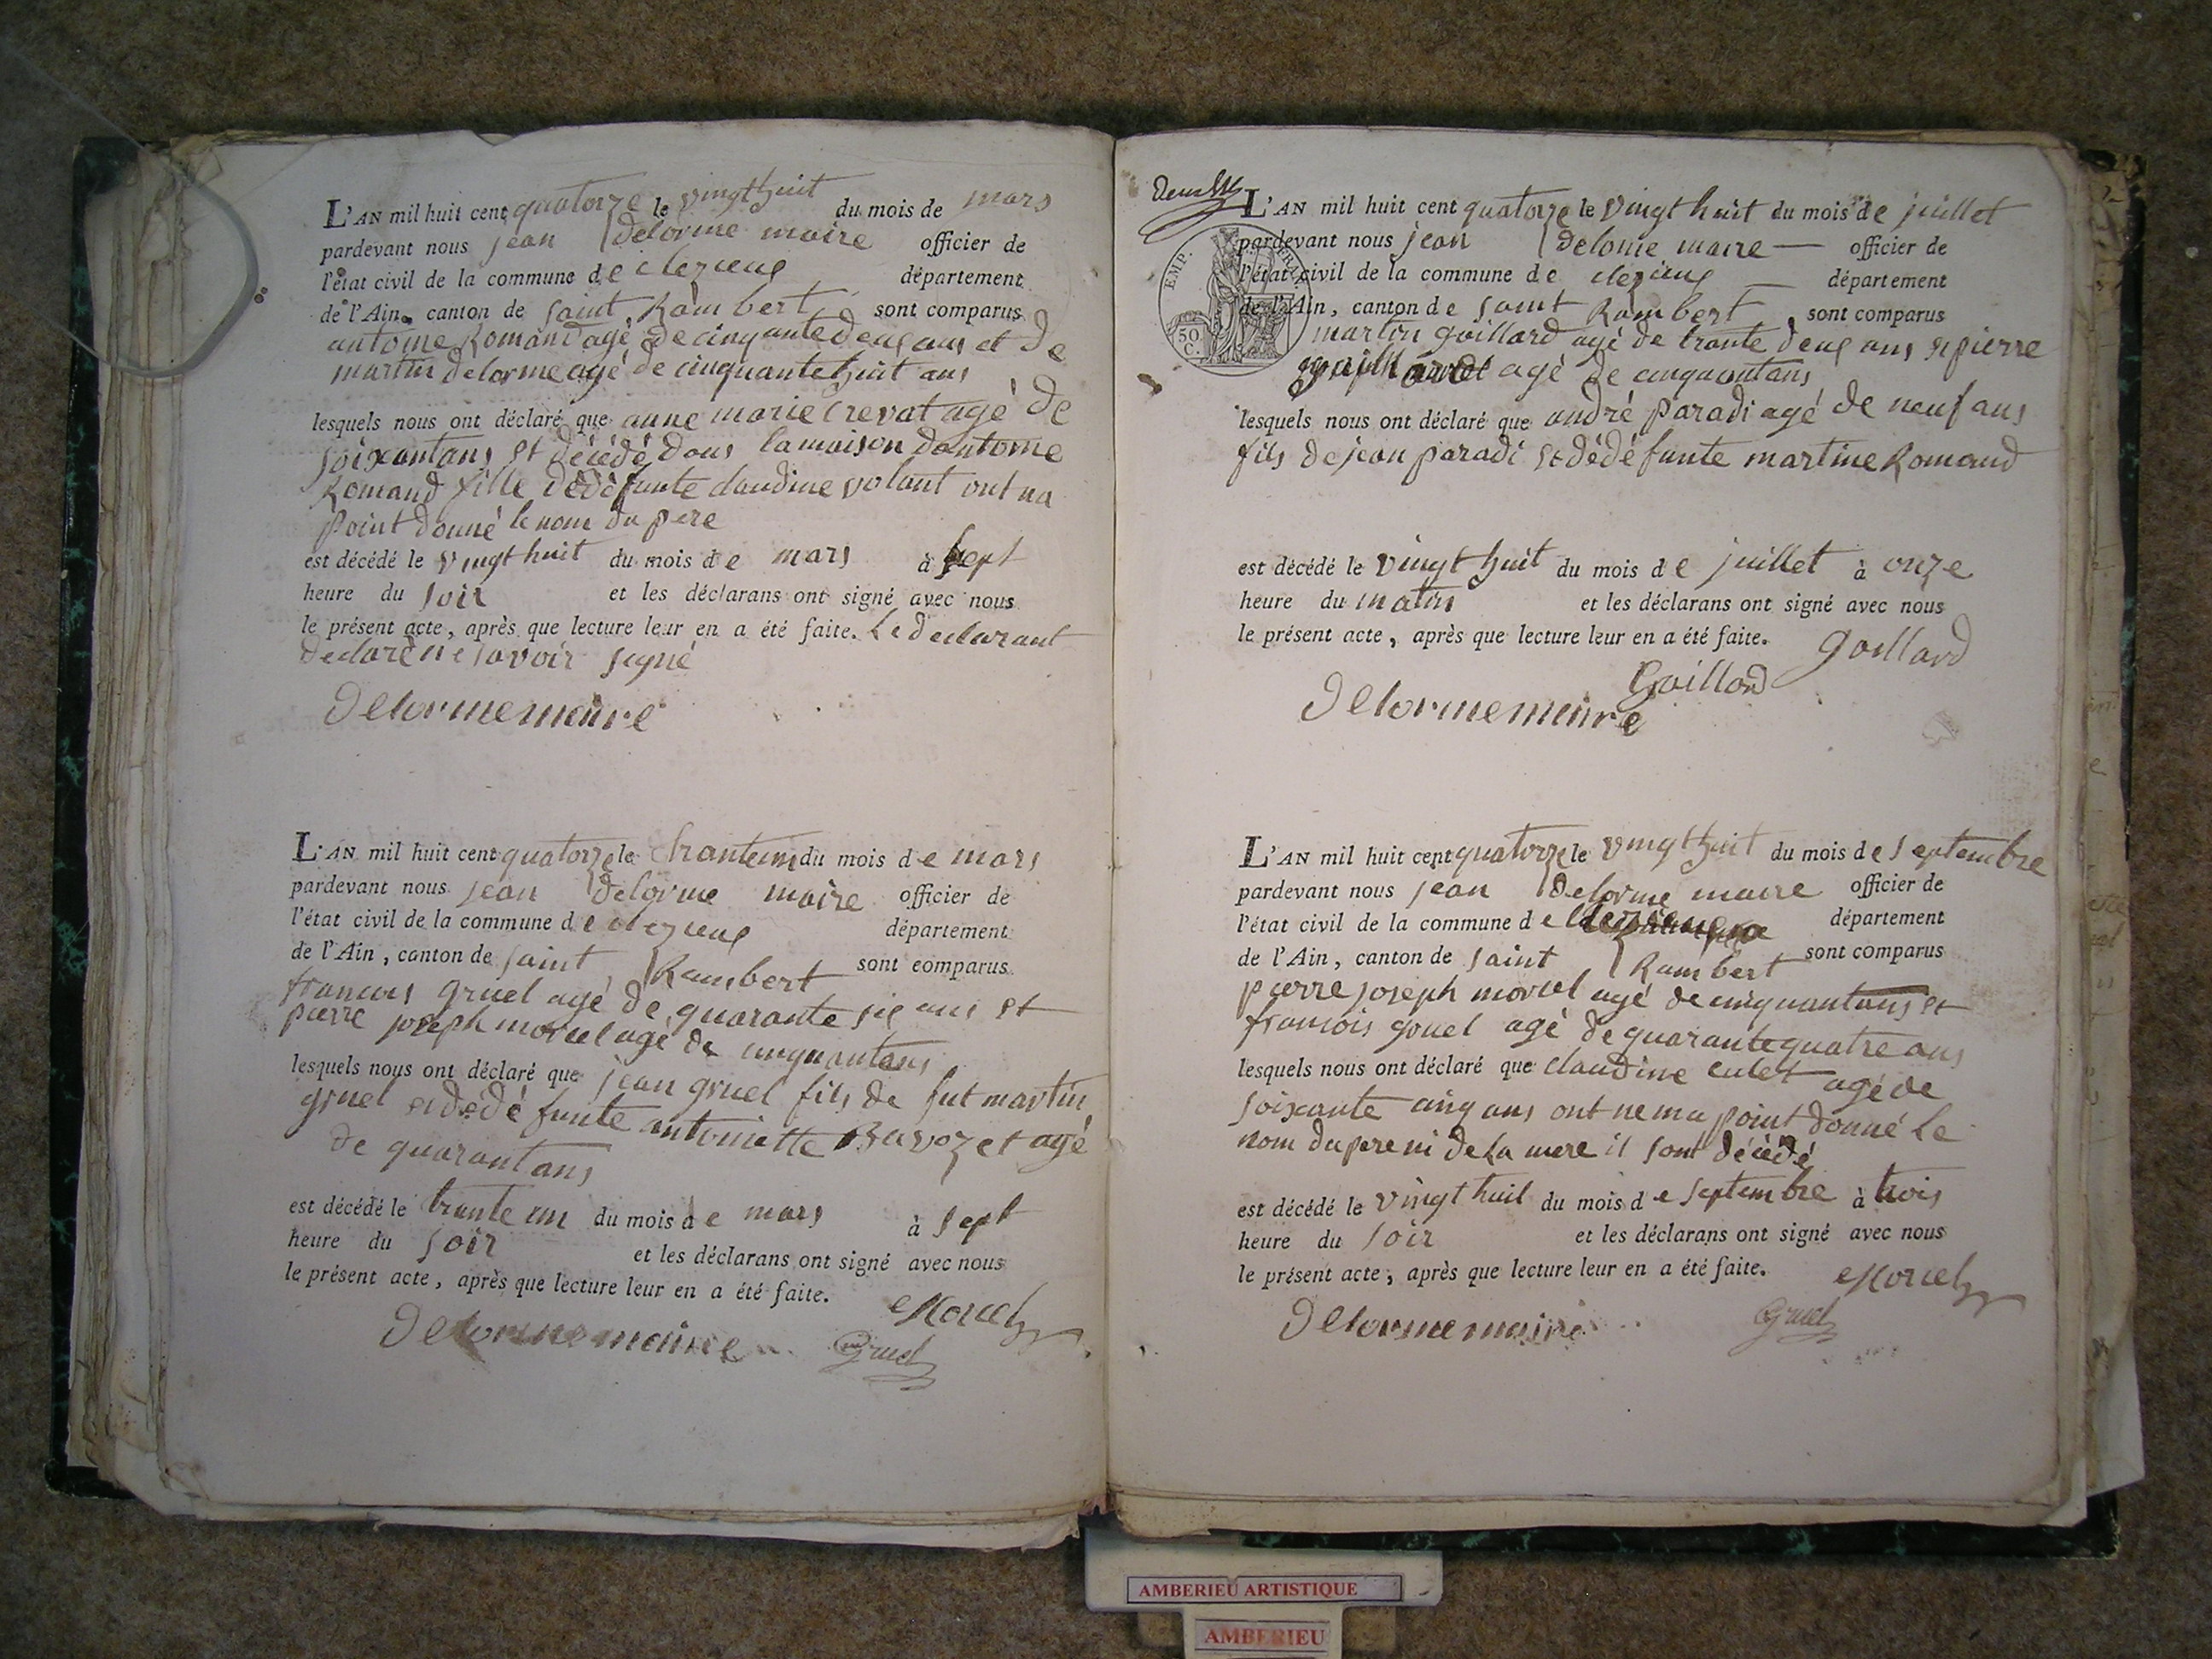 L'AN mil huit cent quatorze le vingt huit du mois de mars
pardevant nous jean delorme maire officier de
l'état civil de la commune de clezieux département
de l'Ain, canton de saint Rambert sont comparus
antoine Romand agé de cinquante deux ans et de
martin delorme agé de cinquante huit ans
lesquels nous ont déclaré que anne marie crevat agé de
soixantans et décédé dans la maison dantoine
Romand fille dédéfunte claudine volant ont na
point donné le nom du pere
est décédé le vingt huit du mois de mars à sept
heure du soir et les déclarans ont signé avec nous
le présent acte, après que lecture leur en a été faite. Le declarant
declaré ne savoir signé
Delorme meire
L'AN mil huit cent quatorze le tranteun du mois de mars
pardevant nous jean delorme maire officier de
l'état civil de la commune de clezieux département
de l'Ain, canton de saint Rambert sont comparus
francois gruel agé de quarante six ans et
pierre joseph morcel agé de cinquantans
lesquels nous ont déclaré que jean gruel fils de fut martin
gruel et dédé funte antoinette Bavozet agé
de quarantans
est décédé le trante un du mois de mars à sept
heure du soir et les déclarans ont signé avec nous
le présent acte, après que lecture leur en a été faite.
Morcel
Delorme meire Gruel
L'AN mil huit cent quatorze le vingt huit du mois de juillet
pardevant nous jean delorme maire officier de
l'état civil de la commune de clezieux département
de l'Ain, canton de saint Rambert sont comparus
EMP.
50 C.
martin goillard agé de trante deux ans et pierre
agé de cinquantans
lesquels nous ont déclaré que andré paradi agé de neuf ans
fils de jean paradi et dédé funte martine Romand
est décédé le vingt huit du mois de juillet à onze
heure du matin et les déclarans ont signé avec nous
le présent acte, après que lecture leur en a été faite. goillard
Goillard
Delorme meire
L'AN mil huit cent quatorze le vingt huit du mois de septembre
pardevant nous jean delorme maire officier de
l'état civil de la commune de département
de l'Ain, canton de saint Rambert sont comparus
pierre joseph morcel agé de cinquantans et
francois gruel agé de quarante quatre ans
lesquels nous ont déclaré que claudine culet agé de
soixante cinq ans ont ne ma point donné le
nom du pere ni de la mere il sont décédé
est décédé le vingt huit du mois de septembre à trois
heure du soir et les déclarans ont signé avec nous
le présent acte, après que lecture leur en a été faite. Morcel
Delorme maire Gruel
AMBERIEU ARTISTIQUE
AMBERIEU